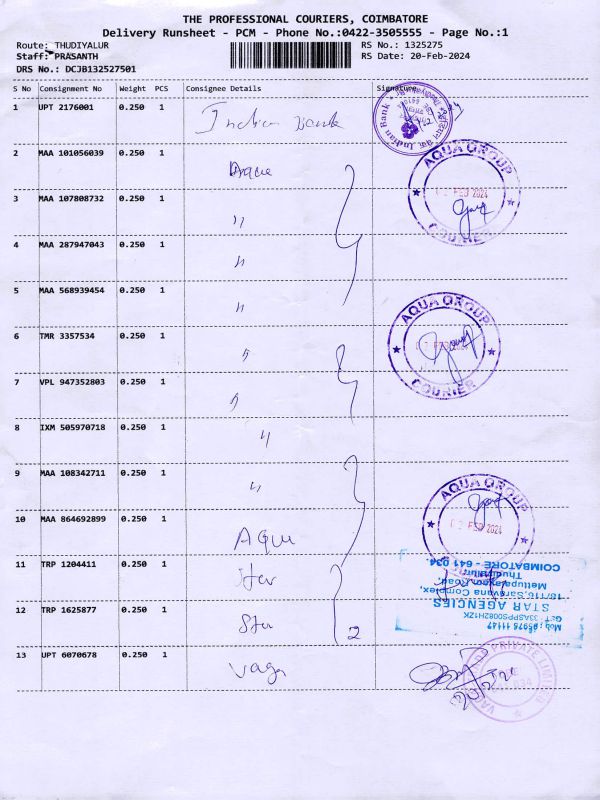 THE PROFESSIONAL COURIERS, COIMBATORE
Delivery Runsheet - PCM - Phone No.:0422-3505555 - Page No.:1
Route: THUDIYALUR RS No.: 1325275
Staff: PRASANTH RS Date: 20-Feb-2024
DRS No.: DCJB132527501
S No Consignment No Weight PCS Consignee Details Signature
1 UPT 2176001 0.250 1 Indian Bank
Indian Bank
2 MAA 101056039 0.250 1 Aqua
AQUA GROUP
FEB 2024
COURIER
3 MAA 107808732 0.250 1 "
4 MAA 287947043 0.250 1 "
5 MAA 568939454 0.250 1 "
AQUA GROUP
COURIER
6 TMR 3357534 0.250 1 "
7 VPL 947352803 0.250 1 "
8 IXM 505970718 0.250 1 "
9 MAA 108342711 0.250 1 "
AQUA GROUP
FEB 2024
10 MAA 864692899 0.250 1 Aqua
11 TRP 1204411 0.250 1 Star
12 TRP 1625877 0.250 1 Star 2
STAR AGENCIES
18/116, Saravana Complex,
Mettupalayam Road,
Thudiyalur
COIMBATORE - 641 034.
13 UPT 6070678 0.250 1 Vaga
PRIVATE LIMITED